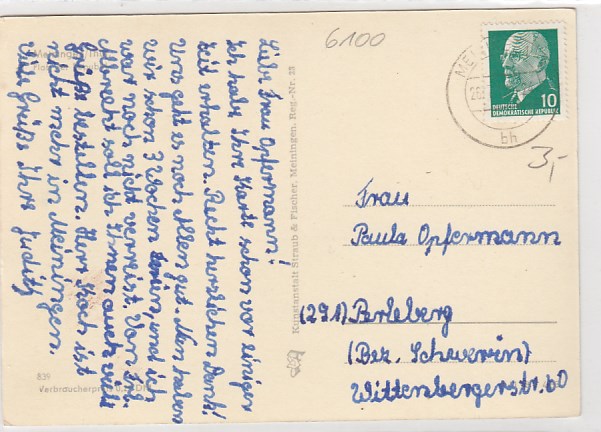 6100
MEI
DEUTSCHE
DEMOKRATISCHE REPUBLIK
10
bh
3,-
Liebe Frau Opfermann!
Ich habe Ihre Karte schon vor einiger
Zeit erhalten. Recht herzlichen Dank!
Uns geht es noch allen gut. Nun haben
wir schon 3 Wochen Ferien, und ich
war noch nicht verreist. Von Fr.
soll ich Ihnen auch recht
Grüße bestellen. Herr Koch ist
nicht mehr in Meiningen.
Viele Grüße Ihre Judith
Kunstanstalt Straub & Fischer, Meiningen, Reg.-Nr. 23
Frau
Paula Opfermann
(291) Perleberg
(Bez. Schwerin)
Wittenbergerstr. 60
839
Verbraucherpreis